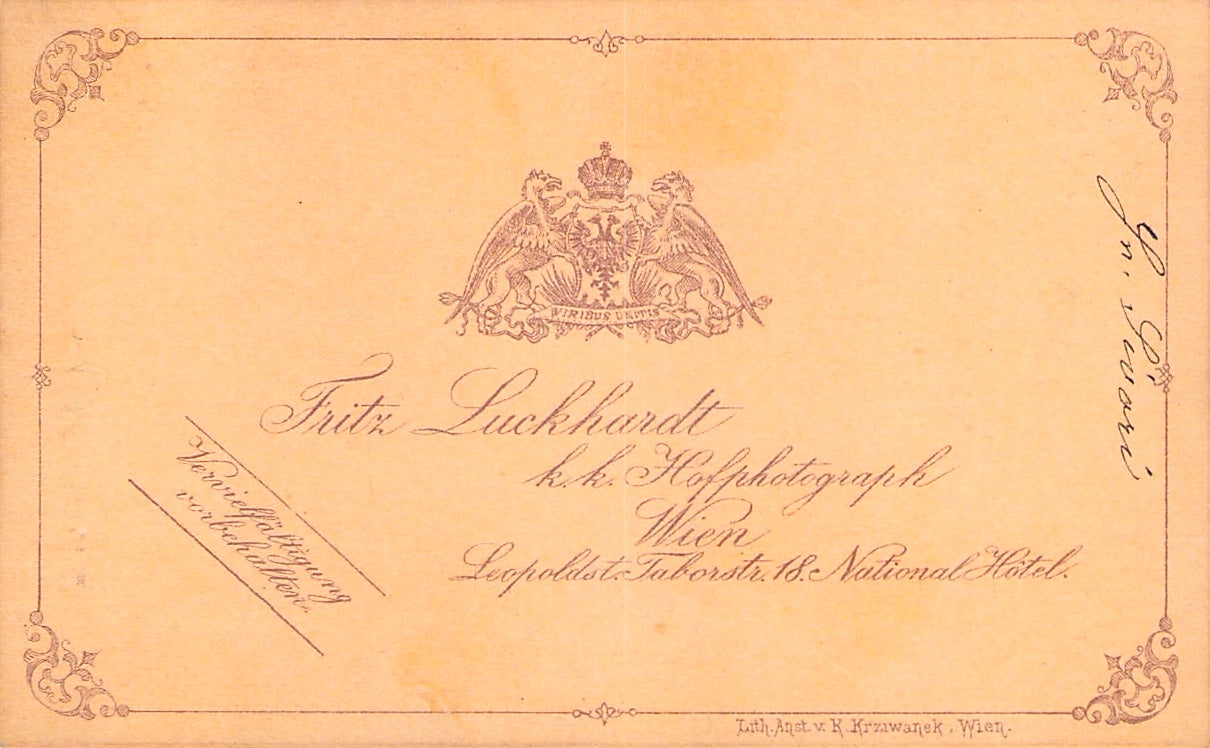 VIRIBUS UNITIS
Fritz Luckhardt
k.k. Hofphotograph
Wien
Leopoldst. Taborstr. 18. National Hôtel.
Vervielfältigung
vorbehalten.
Lith. Anst. v. K. Krziwanek, Wien.